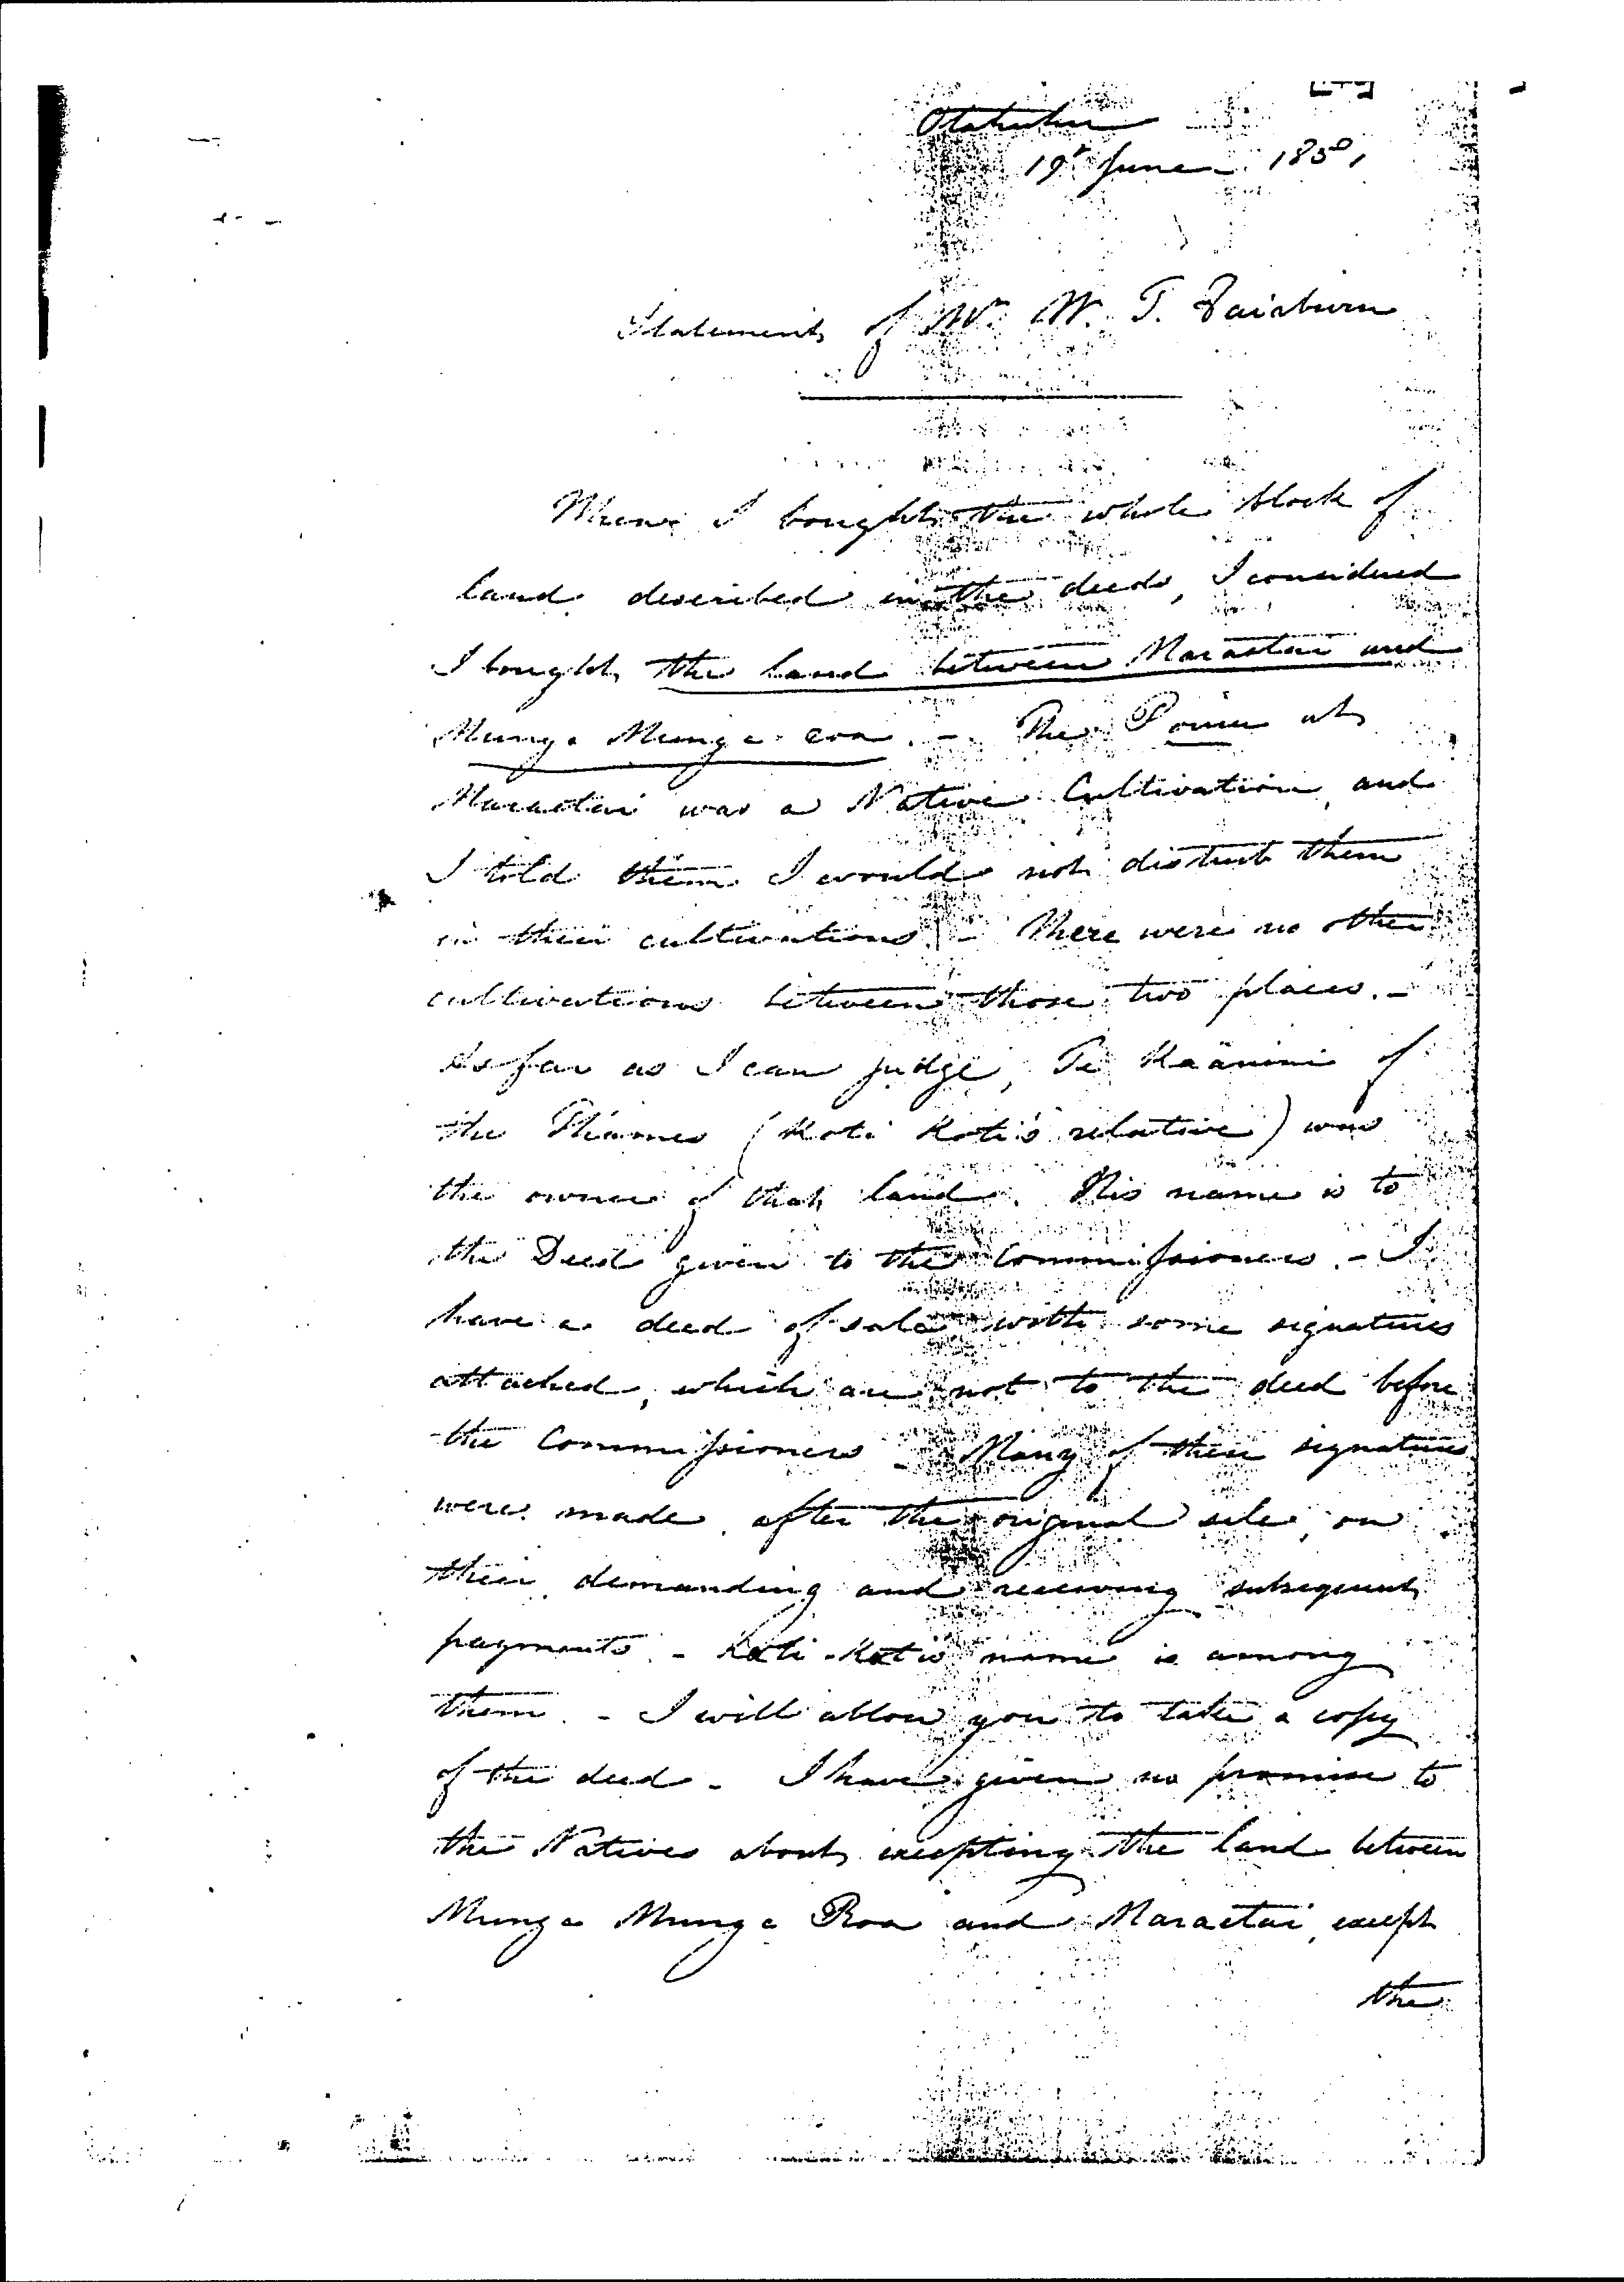 Otahuhu
19th June 1850,
Statement of Mr. W. T. Fairburn
When I bought the whole block of
land described in the deeds, I considered
I bought the land between Maraetai and
Munga Munga roa. - The Poine at
Maraetai was a Native Cultivation, and
I told them I would not disturb them
in their cultivations. - There were no other
cultivations between those two places. -
As far as I can judge, Te Kaanini of
the Thames (Koti Koti's relative) was
the owner of that land. His name is to
the Deed given to the Commissioners. - I
have a deed of sale with some signatures
attached, which are not to the deed before
the Commissioners - Many of their signatures
were made after the original sale, on
their demanding and receiving subsequent
payments. - Koti-Koti's name is among
them. - I will allow you to take a copy
of the deed - I have given no promise to
the Natives about excepting the land between
Munga Munga Roa and Maraetai, except
the